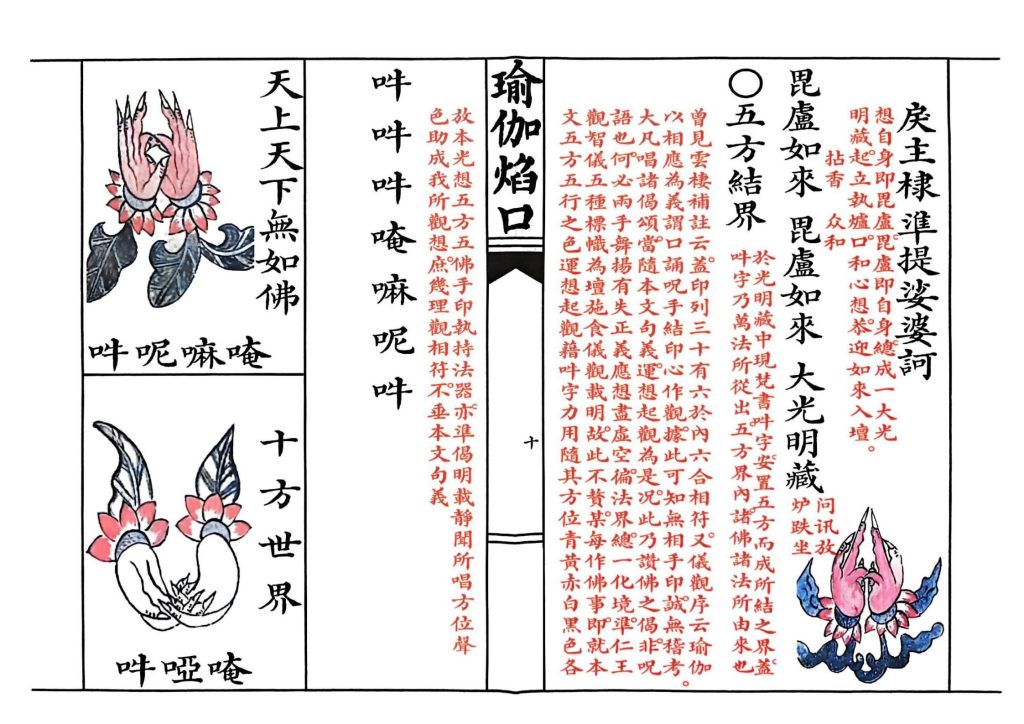 戾主棣準提娑婆訶
想自身即毘盧毘盧即自身總成一大光
明藏起立執爐口和心想恭迎如來入壇。
拈香 众和
毘盧如來 毘盧如來 大光明藏
问讯放
炉趺坐
〇五方結界
於光明藏中現梵書吽字安置五方而成所結之界蓋
吽字乃萬法所從出五方界內諸佛諸法所由來也
曾見雲棲補註云蓋印列三十有六於內六合相符又儀觀序云瑜伽
以相應為義謂口誦呪手結印心作觀據此可知無相手印誠無稽考。
大凡唱諸偈頌當隨本文句義運想起觀為是况此乃讚佛之偈非呪
語也何必兩手舞揚有失正義應想盡虛空徧法界總一化境準仁王
觀智儀五種標幟為壇施食儀觀載明故此不贅某每作佛事即就本
文五方五行之色運想起觀藉吽字力用隨其方位青黃赤白黑色各
瑜伽焰口
十
放本光想五方五佛手印執持法器亦準偈明載靜聞所唱方位聲
色助成我所觀想庶幾理觀相符不垂本文句義
吽吽吽唵嘛呢吽
天上天下無如佛
唵嘛呢吽
十方世界
唵啞吽